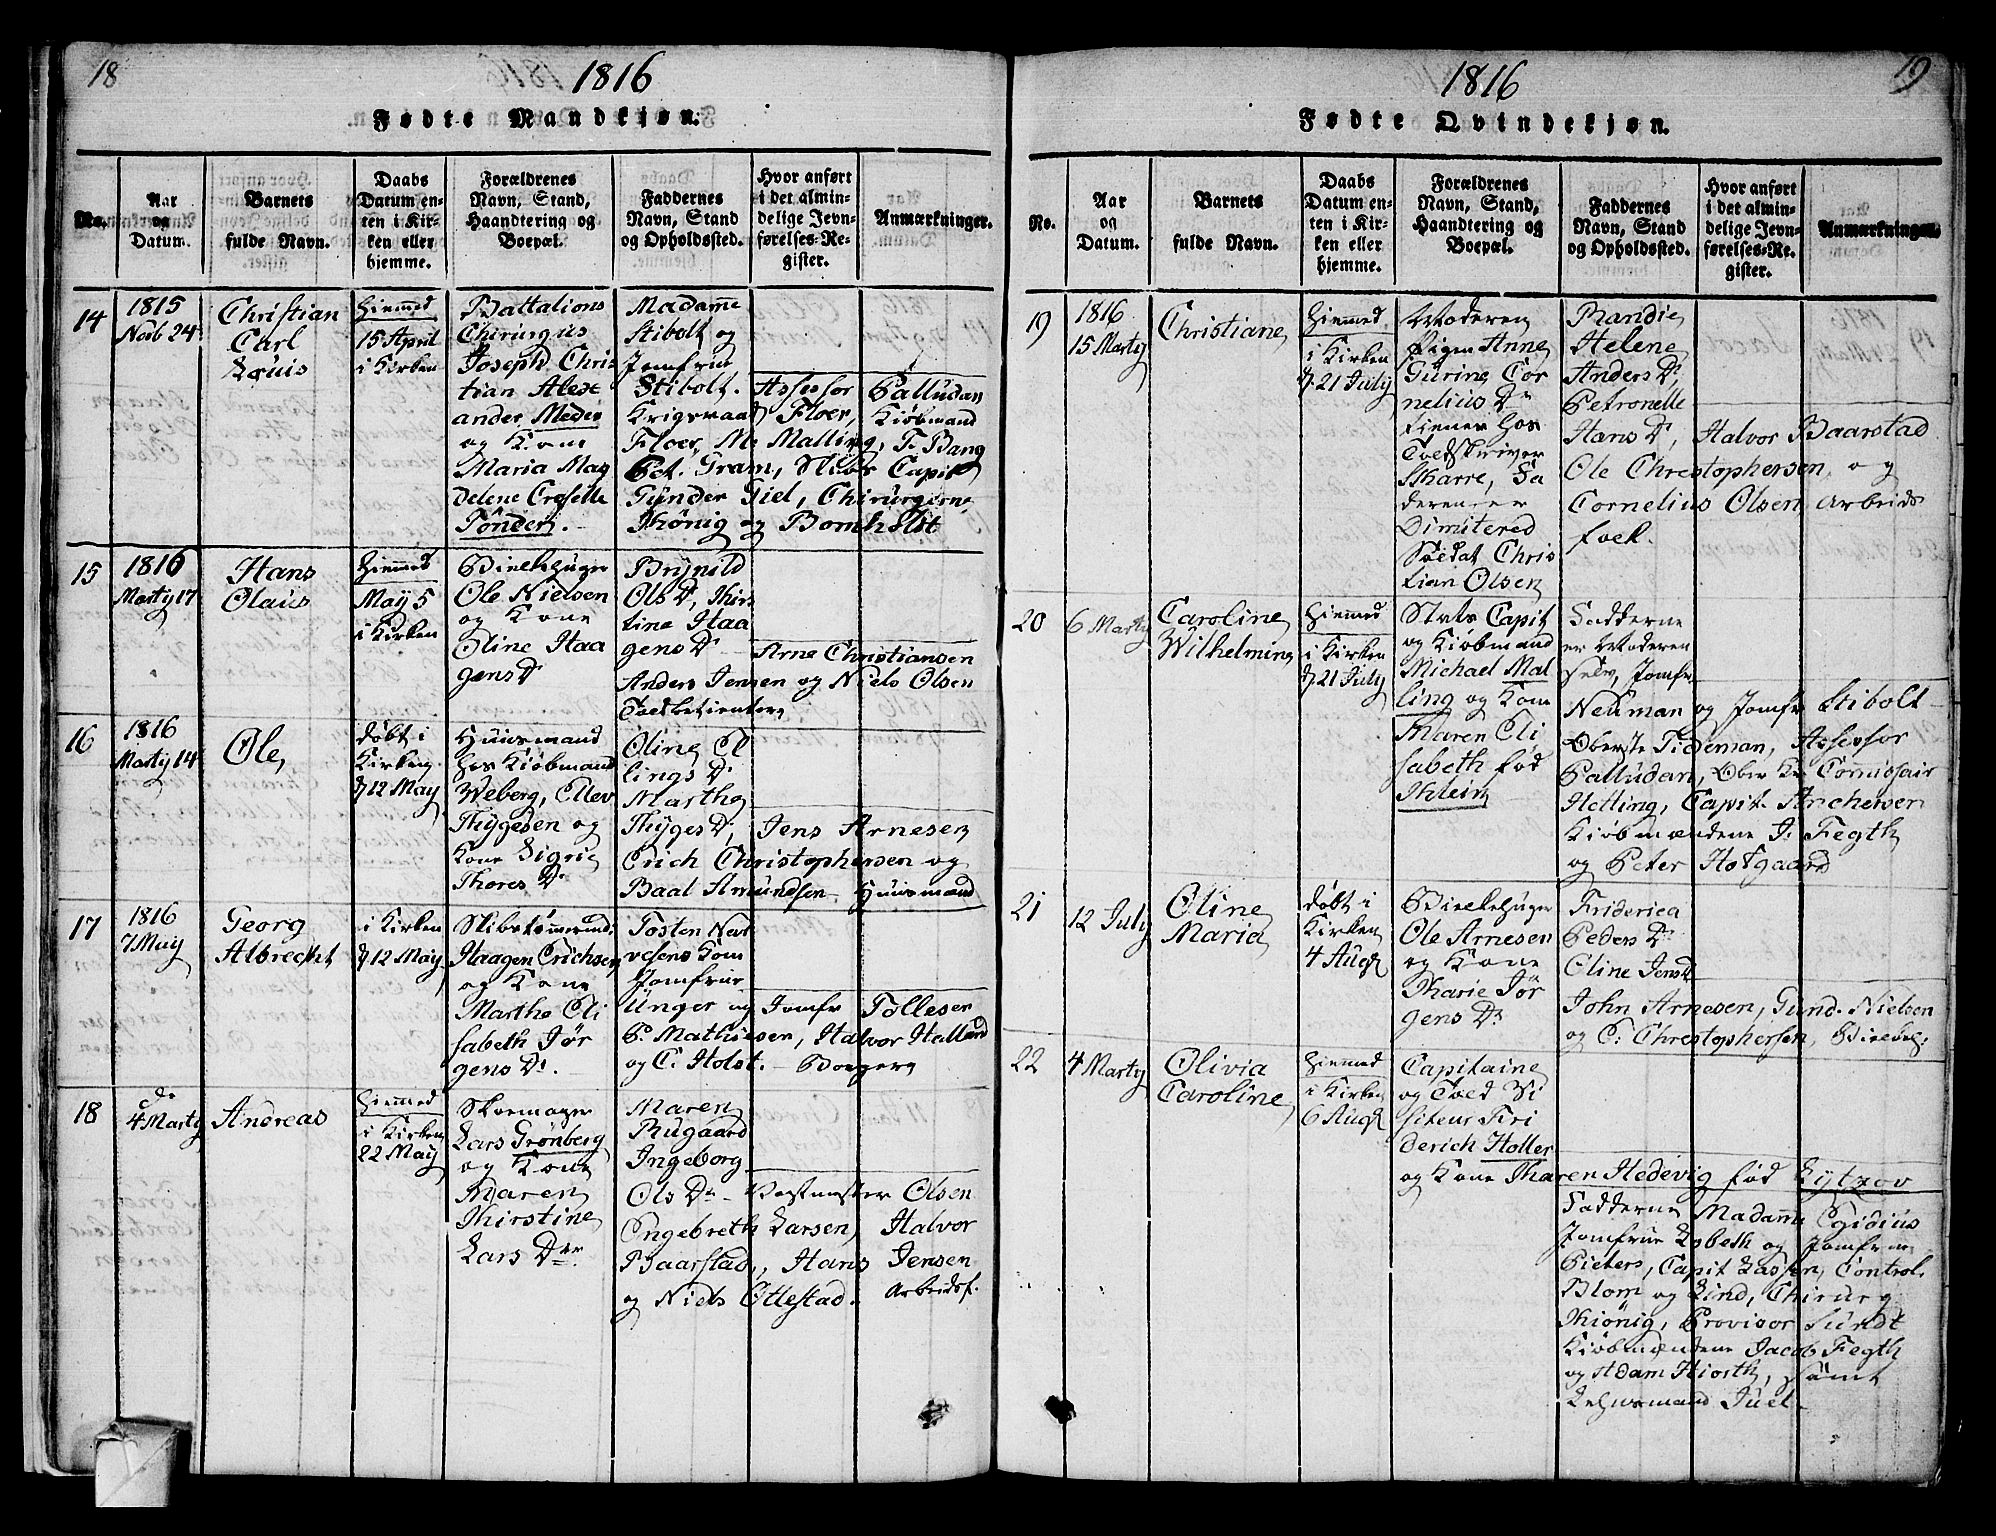 18
1816
Fødte Mandkiøn.
No.
Aar
og
Datum.
Barnets
fulde Navn.
Daabs
Datum en-
ten i Kir-
ken eller
hjemme.
Forældrenes
Navn, Stand,
Haandtering og
Boepæl.
Faddernes
Navn, Stand
og Opholdssted.
Hvor anført
i det almin-
delige Jevn-
førelses-Re-
gister.
Anmærkninger.
14
1815
Novb 24
Christian
Carl
Louis
Hiemmed
15 April
i Kirken
Battalions
Chirurgus
Joseph Chris
tian Alex
ander Meder
og Kone
Maria Mag
delene Croselle
Tønder.
Madamme
Stibolt og
Jomfrue
Stibolt. Assessor Palludan
Krigsraad Floer, Kiøbmand
Floer, M. Malling, T. Bang
Pet. Gram, Skibs Capit
Gunder Giel, Chirurgerne
Kiönig og Bomholdt
15
1816
Marty 17
Hans
Olaus
Hiemmed
May 5
i Kirken
Birkehuger
Ole Nielsen
og Kone
Eline Haa
gens Dr
Brynild
Ols Dr, Kirs
tine Haa
gens Dr Arne Christiansen
Anders Jensen og Niels Olsen
Toldbetientere
16
1816
Marty 14
Ole,
døbt i
Kirken
d. 12 May
Huusmand
hos Kiøbmand
Weberg, Ellev
Thygesen og
Kone Sigrie
Thores Dr
Oline El
lings Dr
Marthe
Thyges Dr, Jens Arnesen
Erich Christophersen og
Baal Amundsen Huusmænd
17
1816
7 May
Georg
Albrecht
i Kirken
d. 12 May
Skibstømmermd.
Haagen Erichsen
og Kone
Marthe Eli
sabeth Jør
gens Dr.
Tosten Nar
vesens Kone
Jomfrue
Unger og Jomfr Tollefsen
P. Mathiesen, Halvor Halland
og C. Holst. Borgere
18
do
4 Marty
Andreas
Hiemmed
i Kirken
22 May
Skoemager
Lars Grønberg
og Kone
Maren
Kirstine
Lars Dr
Maren
Rugaard
Ingeborg
Ols Dr Postmester Olsen
Engebreth Larsen, Halvor
Baarstad, Hans Jensen
og Niels Ottestad. Arbeidsf.
19
1816
Fødte Qvindekiøn.
No.
Aar
og
Datum.
Barnets
fulde Navn.
Daabs
Datum en-
ten i Kir-
ken eller
hjemme.
Forældrenes
Navn, Stand,
Haandtering og
Boepæl.
Faddernes
Navn, Stand
og Opholdssted.
Hvor anført
i det almin-
delige Jevn-
førelses-Re-
gister.
Anmærkninger.
19
1816
15 Marty
Christiane
Hiemmed
i Kirken
d. 21 July
Moderen
Pigen Anne
Gurine Cor
nelius Dr
tiener hos
Toldskriver
Skarre, Fa
deren er
Dimitered
Soldat Chris
tian Olsen
Randie
Helene
Anders Dr,
Petronelle
Hans Dr, Halvor Baarstad
Ole Christophersen og
Cornelius Olsen Arbeids
folk.
20
6 Marty
Caroline
Wilhelmine
Hiemmed
i Kirken
d. 21 July
Skibs Capit
og Kiøbmand
Michael Mal
ling og Kone
Maren Eli
sabeth fød
Klein
Fadderne
er Moderen
selv, Jomfr
Neuman og Jomfr Stibolt
Oberste Tideman, Assessor
Palludan, Ober Kr Commissair
Hetting, Capit. Anchersen
Kiøbmændene J. Fegth
og Peter Hofgaard
21
12 July
Oline
Maria
døbt i
Kirken
4 Aug
Birkehuger
Ole Arnesen
og Kone
Marie Jør
gens Dr
Friderica
Peders Dr
Eline Jens Dr
John Arnesen, Gund. Nielsen
og C. Christophersen,
22
4 Marty
Olivia
Caroline
Hiemmed
i Kirken
6 Aug
Capitaine
og Told Vi
siteur Fri
derich Holler
og Kone Maren Hedevig fød Lytzov
Fadderne Madamme Egidius
Jomfrue Elsbeth og Jomfrue
Pieters, Capit Lassen, Control.
Blom og Lind, Chirurg
Kiönig, Provisor Sundt
Kiøbmændene Jacob Fegth
og Adam Hiorth, samt
Juel.